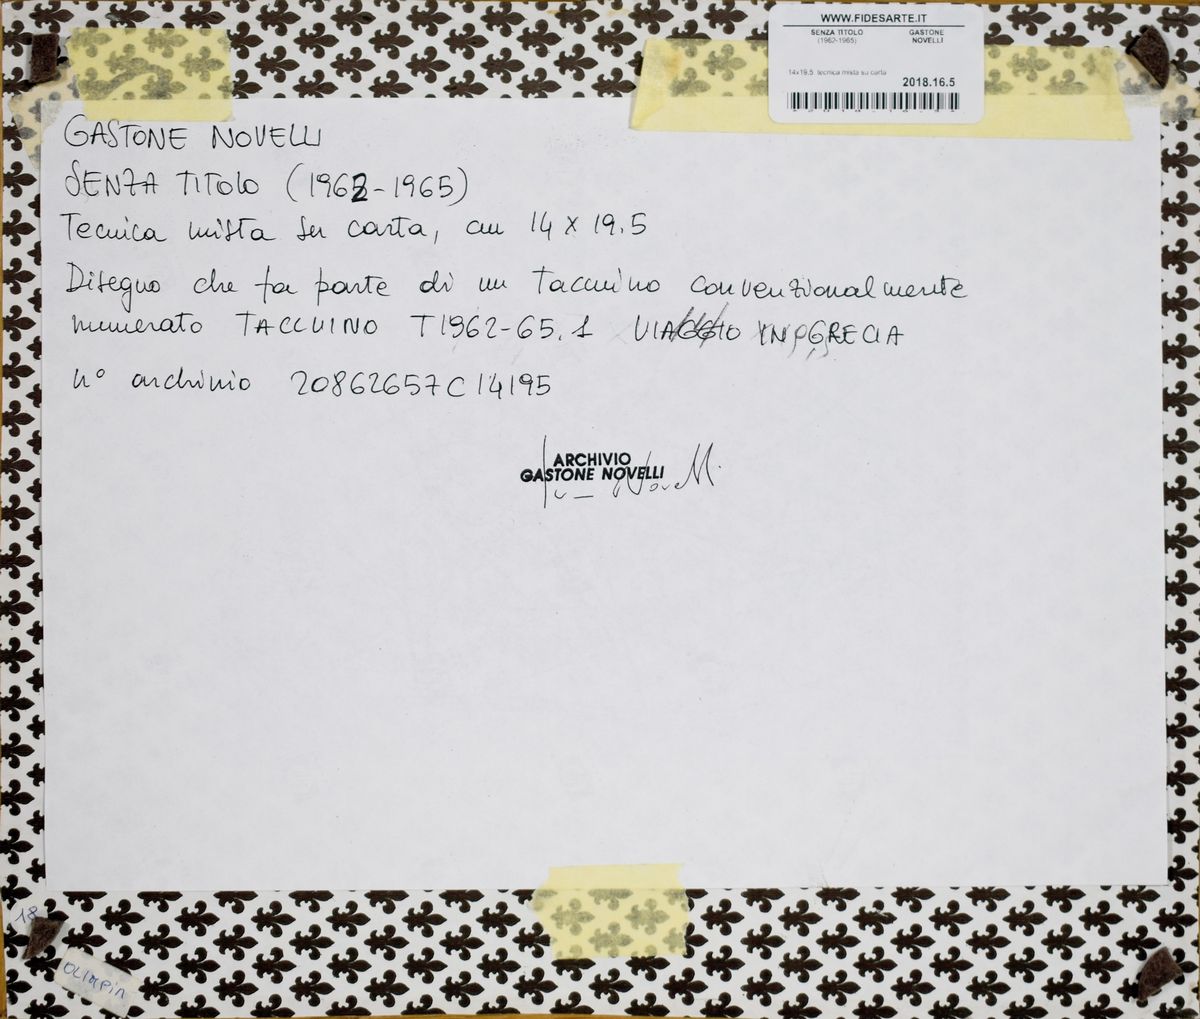 WWW.FIDESARTE.IT
SENZA TITOLO GASTONE
(1962-1965) NOVELLI
14x19.5 tecnica mista su carta
2018.16.5
GASTONE NOVELLI
SENZA TITOLO (1962-1965)
Tecnica mista su carta, cm 14 x 19.5
Disegno che fa parte di un taccuino convenzionalmente
numerato TACCUINO T1962-65.1 VIAGGIO IN GRECIA
n° archivio 20862657C14195
ARCHIVIO
GASTONE NOVELLI
Novelli
18